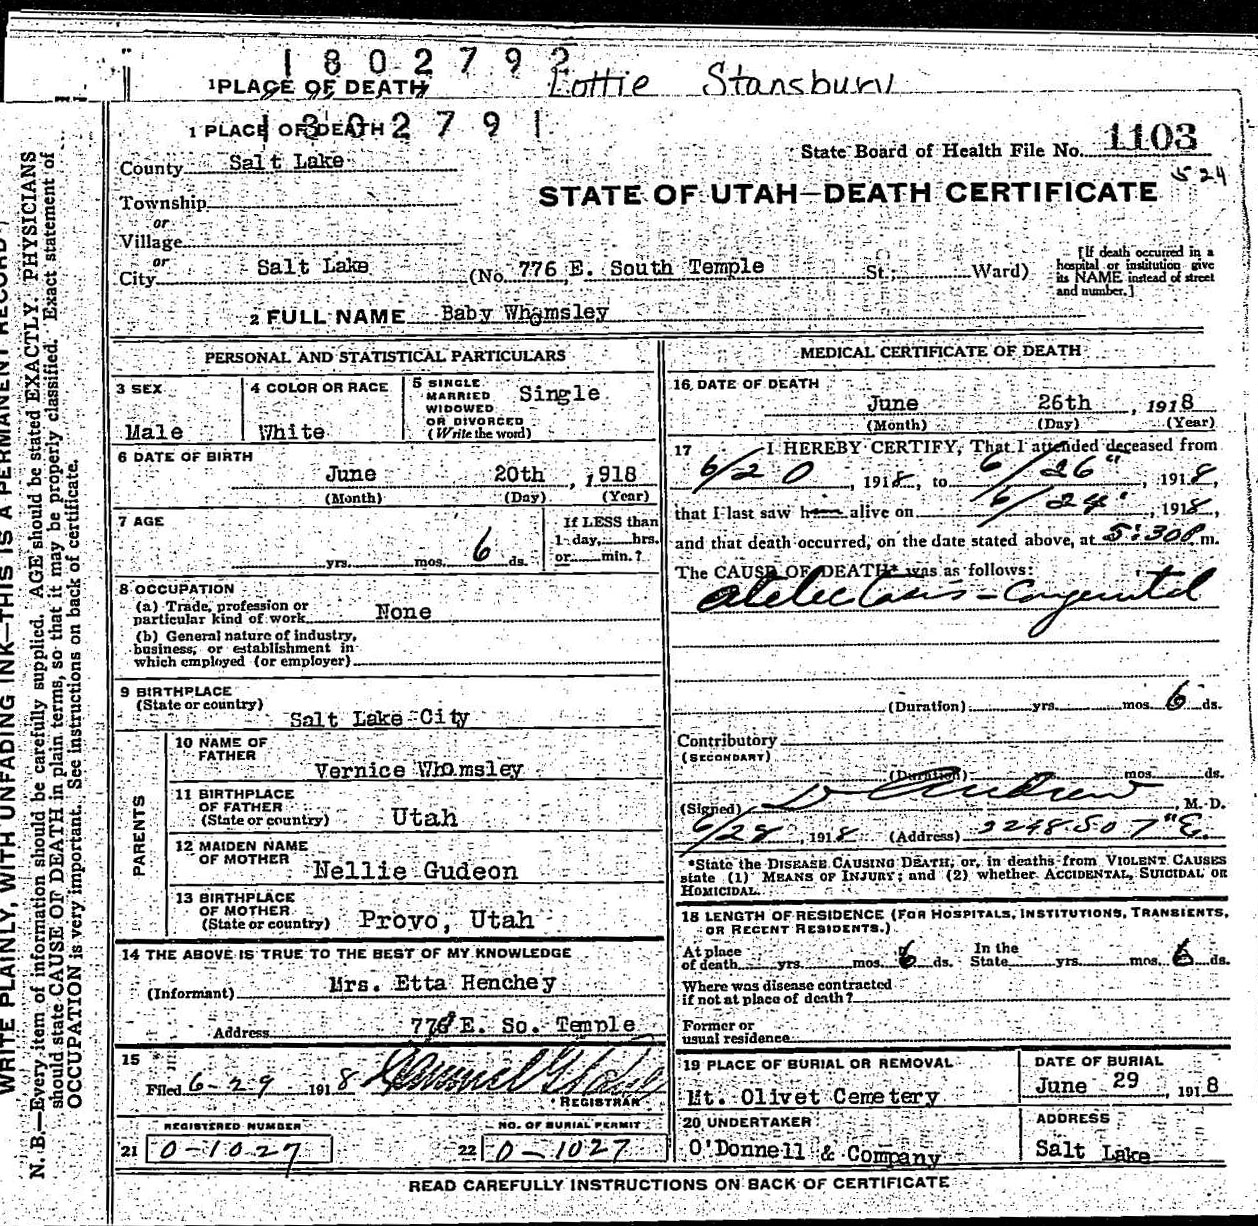 1802792
1 PLACE OF DEATH Lottie Stansbury
1802791
1 PLACE OF DEATH
State Board of Health File No. 1103
County Salt Lake
524
STATE OF UTAH—DEATH CERTIFICATE
Township
or
Village
or
City Salt Lake (No. 776 E. South Temple St.; Ward)
[If death occurred in a hospital or institution give its NAME instead of street and number.]
2 FULL NAME Baby Whamsley
PERSONAL AND STATISTICAL PARTICULARS
3 SEX
Male
4 COLOR OR RACE
White
5 SINGLE
MARRIED
WIDOWED
OR DIVORCED
(Write the word)
Single
6 DATE OF BIRTH
June 20th, 1918
(Month) (Day) (Year)
7 AGE
yrs. mos. 6 ds.
If LESS than
1 day, hrs.
or min.?
8 OCCUPATION
(a) Trade, profession or
particular kind of work None
(b) General nature of industry,
business, or establishment in
which employed (or employer)
9 BIRTHPLACE
(State or country)
Salt Lake City
PARENTS
10 NAME OF
FATHER
Vernice Whamsley
11 BIRTHPLACE
OF FATHER
(State or country) Utah
12 MAIDEN NAME
OF MOTHER
Nellie Gudeon
13 BIRTHPLACE
OF MOTHER
(State or country) Provo, Utah
14 THE ABOVE IS TRUE TO THE BEST OF MY KNOWLEDGE
(Informant) Mrs. Etta Henchey
Address 776 E. So. Temple
15
Filed 6-29 1918
REGISTRAR
REGISTERED NUMBER
21 0-1027
NO. OF BURIAL PERMIT
22 0-1027
MEDICAL CERTIFICATE OF DEATH
16 DATE OF DEATH
June 26th, 1918
(Month) (Day) (Year)
17 I HEREBY CERTIFY, That I attended deceased from
6/20, 1918, to 6/26", 1918,
that I last saw h alive on 6/24", 1918,
and that death occurred, on the date stated above, at 5:30P m.
The CAUSE OF DEATH* was as follows:
atelectasis - Congenital
(Duration) yrs. mos. 6 ds.
Contributory
(SECONDARY)
(Duration) mos. ds.
(Signed) M. D.
6/28, 1918 (Address) 2248 So 7" E.
*State the DISEASE CAUSING DEATH, or, in deaths from VIOLENT CAUSES
state (1) MEANS OF INJURY; and (2) whether ACCIDENTAL, SUICIDAL OR
HOMICIDAL.
18 LENGTH OF RESIDENCE (FOR HOSPITALS, INSTITUTIONS, TRANSIENTS,
OR RECENT RESIDENTS.)
At place
of death yrs. mos. 6 ds. In the
State yrs. mos. 6 ds.
Where was disease contracted
if not at place of death?
Former or
usual residence
19 PLACE OF BURIAL OR REMOVAL
Mt. Olivet Cemetery
DATE OF BURIAL
June 29, 1918
20 UNDERTAKER
O'Donnell & Company
ADDRESS
Salt Lake
READ CAREFULLY INSTRUCTIONS ON BACK OF CERTIFICATE
WRITE PLAINLY, WITH UNFADING INK—THIS IS A PERMANENT RECORD
N. B.—Every item of information should be carefully supplied. AGE should be stated EXACTLY. PHYSICIANS
should state CAUSE OF DEATH in plain terms, so that it may be properly classified. Exact statement of
OCCUPATION is very important. See instructions on back of certificate.